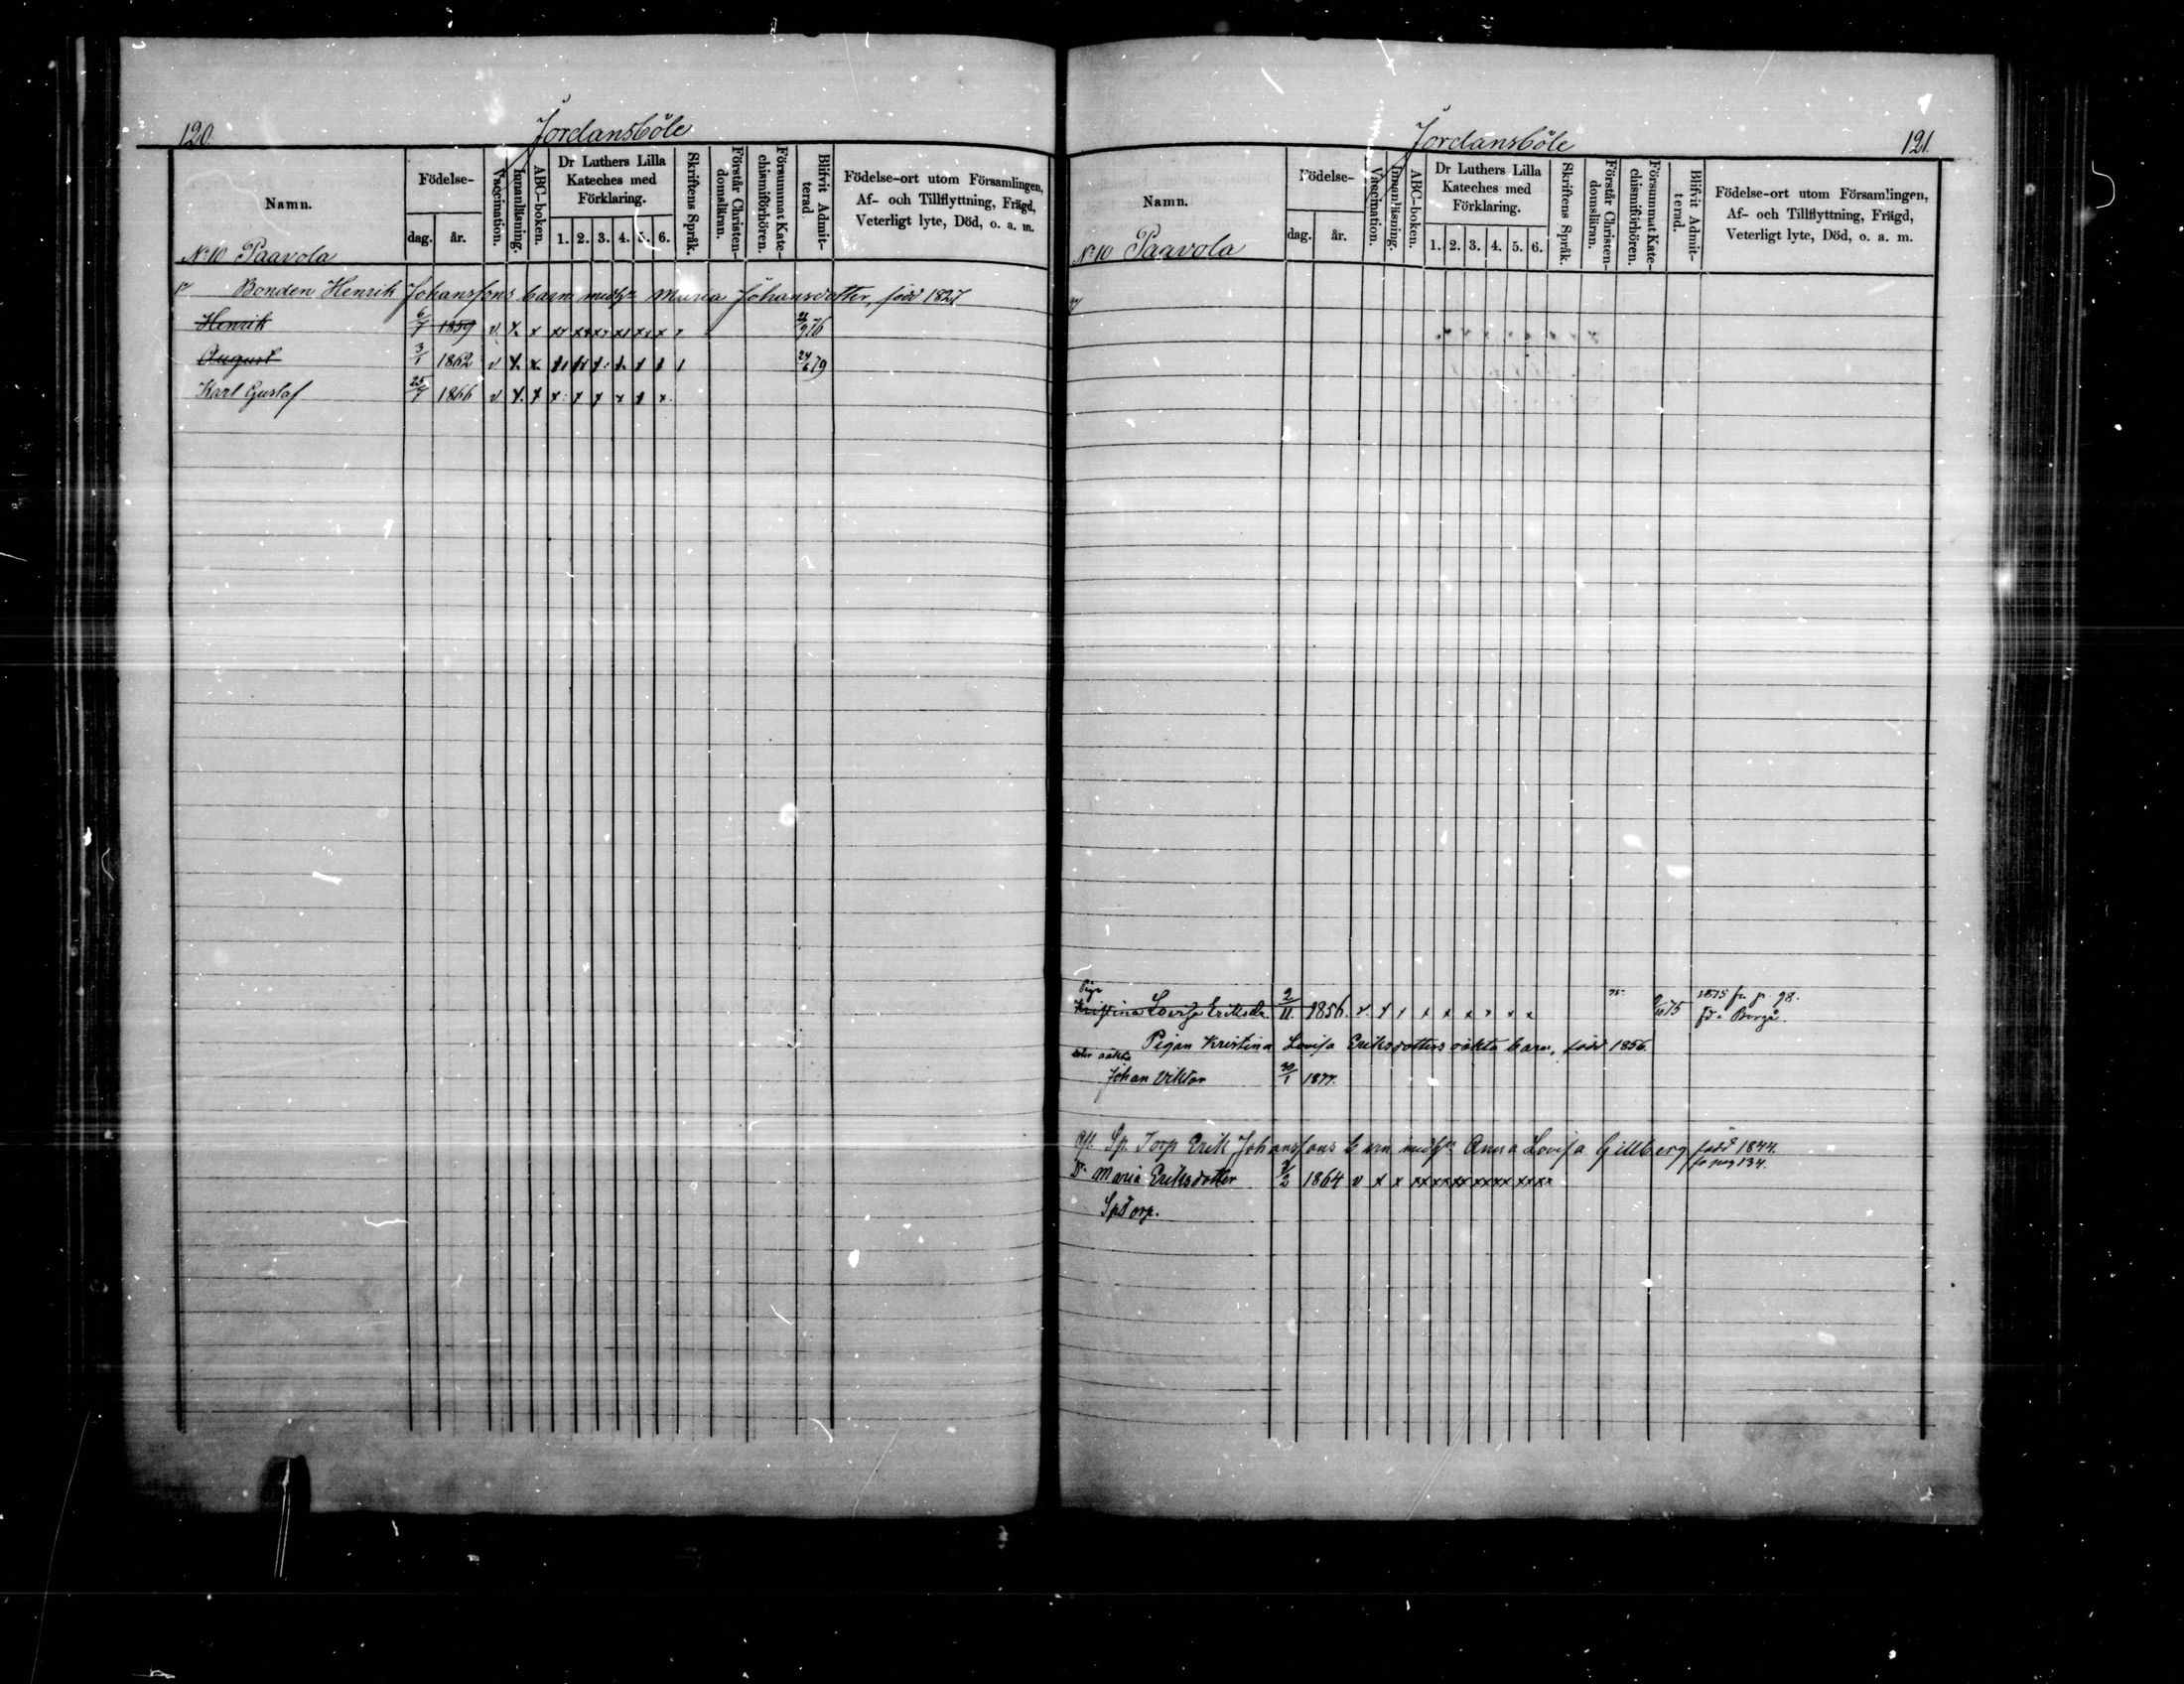 120.
Jordansböle
Namn.
Födelse-
dag.
år.
Vaccination.
Innanläsning.
ABC-boken.
Dr Luthers Lilla
Kateches med
Förklaring.
1. 2. 3. 4. 5. 6.
Skriftens Språk.
Förstår Christen-
domsläran.
Försummat Kate-
chismiförhören.
Blifvit Admit-
terad.
Födelse-ort utom Församlingen,
Af- och Tillflyttning, Frägd,
Veterligt lyte, Död, o. a. m.
No 10 Paavola
Bonden Henrik Johanssons barn med h. Maria Johansdotter, född 1827
Henrik 6/7 1859 v x x x7 x4 x7 x1 x1 x 9 76
August 3/1 1862 v x x 24/6 79
Karl Gustaf 25/7 1866 v x x x x x x x x
Jordansböle
121.
Namn.
Födelse-
dag.
år.
Vaccination.
Innanläsning.
ABC-boken.
Dr Luthers Lilla
Kateches med
Förklaring.
1. 2. 3. 4. 5. 6.
Skriftens Språk.
Förstår Christen-
domsläran.
Försummat Kate-
chismiförhören.
Blifvit Admit-
terad.
Födelse-ort utom Församlingen,
Af- och Tillflyttning, Frägd,
Veterligt lyte, Död, o. a. m.
No 10 Paavola
Pig.
Kristina Lovisa Eriksdr. 2/11 1856. x x x x x x x x x 75 1875 fr. p. 98.
fd. i Borgå.
Pigan Kristina Lovisa Eriksdotters oäkta barn, född 1856.
oäkta
Johan Viktor 30/1 1877.
Sp. Torp Erik Johanssons barn med h. Anna Lovisa Gillberg född 1844.
pag 134.
Dr Maria Eriksdotter 1864 v x x xx xx xx xx xx xx
Sp Torp.